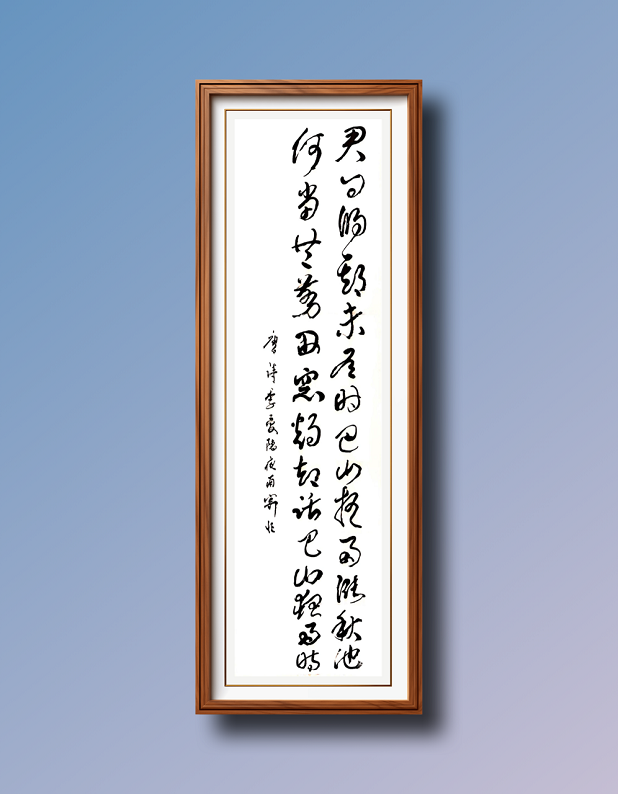 君问归期未有期巴山夜雨涨秋池
何當共剪西窗燭却話巴山夜雨時
唐诗李商隐夜雨寄北